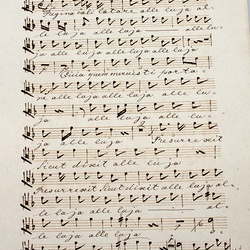 Regina coeli laetare alle luja al=
le luja alle luja allelu=
ja alle luja alle luja alle luja
Quia quem meruisti porta=
re alle luja alle luja alle luja
alle luja alle lu=
ja alle luja Resurrexit
Sicut dixit alle luja
Resurrexit Sicut dixit alle luja al=
le luja alle luja alle lu=
ja alle luja